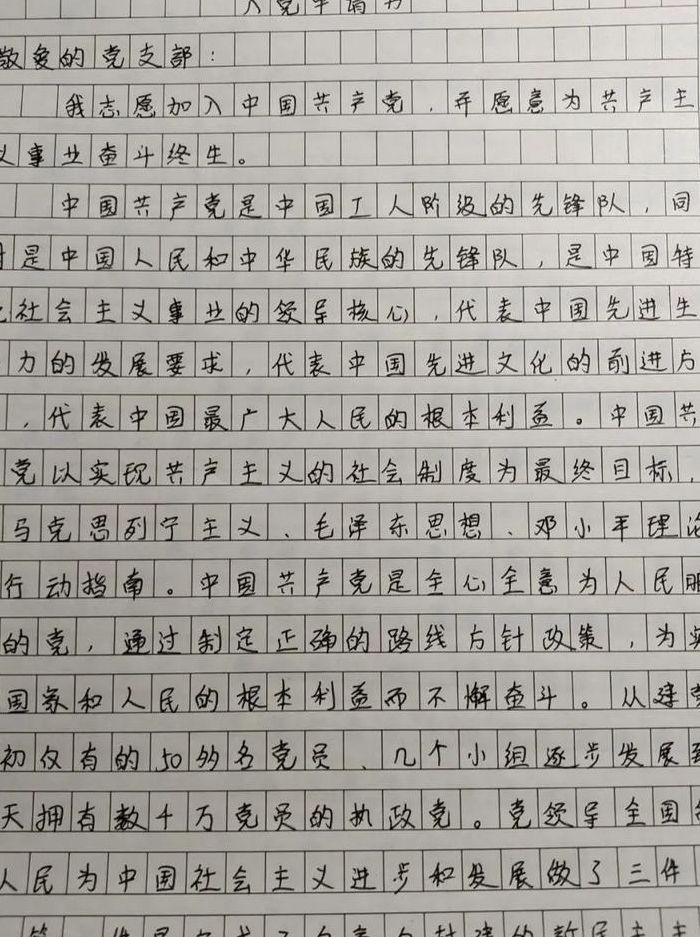 入党申请书
敬爱的党支部：
我志愿加入中国共产党，并愿意为共产主
义事业奋斗终生。
中国共产党是中国工人阶级的先锋队，同
时是中国人民和中华民族的先锋队，是中国特
色社会主义事业的领导核心，代表中国先进生
力的发展要求，代表中国先进文化的前进方
，代表中国最广大人民的根本利益。中国共
党以实现共产主义的社会制度为最终目标，
马克思列宁主义、毛泽东思想、邓小平理论
行动指南。中国共产党是全心全意为人民服
的党，通过制定正确的路线方针政策，为实
国家和人民的根本利益而不懈奋斗。从建党
初仅有的50多名党员、几个小组逐步发展到
天拥有数千万党员的执政党。党领导全国
人民为中国社会主义进步和发展做了三件